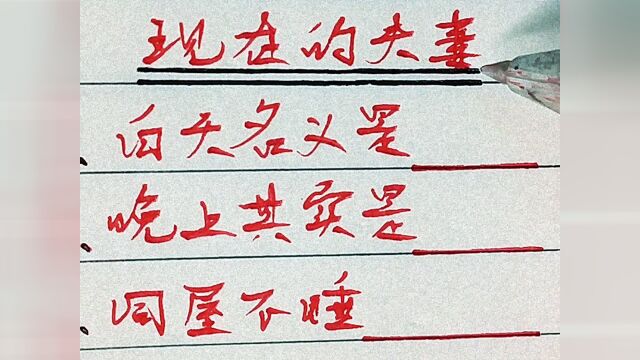 现在的夫妻
白天名义是
晚上其实是
同屋不睡